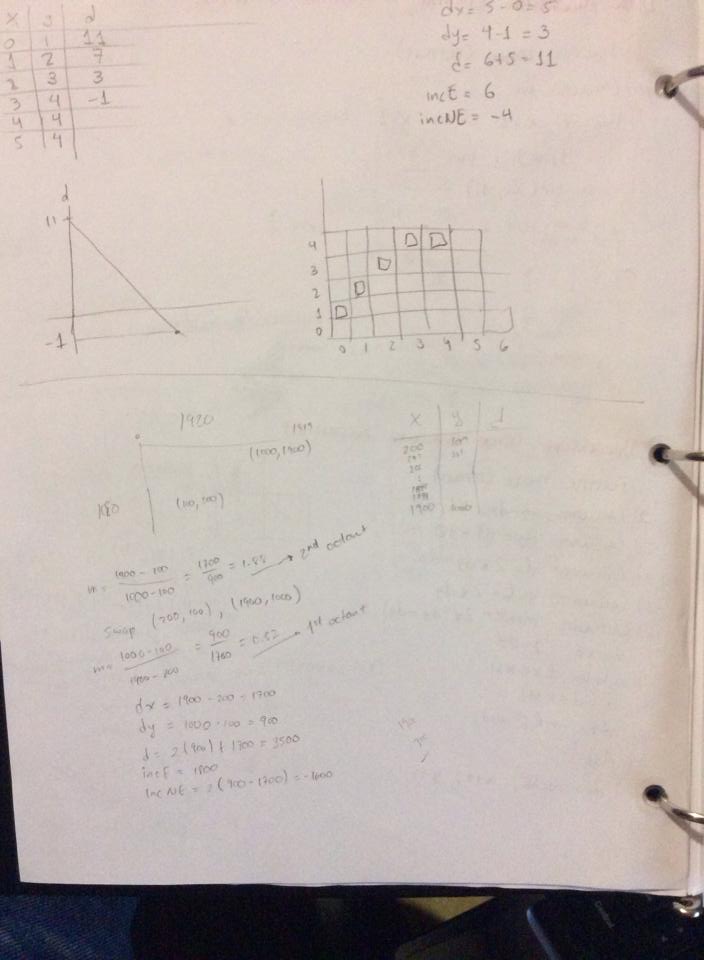 x y d
0 1 11
1 2 7
2 3 3
3 4 -1
4 4
5 4
dx = 5 - 0 = 5
dy = 4 - 1 = 3
d = 6+5 = 11
incE = 6
incNE = -4
d
11
-1
4
3
2
1
0
0 1 2 3 4 5 6
1920
(1000, 1900)
x y d
200 100
201 101
1900 1000
m = 1900 - 200 / 1000 - 100 = 1700 / 900 = 1.88 → 2nd octant
Swap (200, 100), (1900, 1000)
m = 1000 - 100 / 1900 - 200 = 900 / 1700 = 0.52 → 1st octant
dx = 1900 - 200 = 1700
dy = 1000 - 100 = 900
d = 2(900) + 1700 = 3500
incE = 1800
incNE = 2(900 - 1700) = -1600